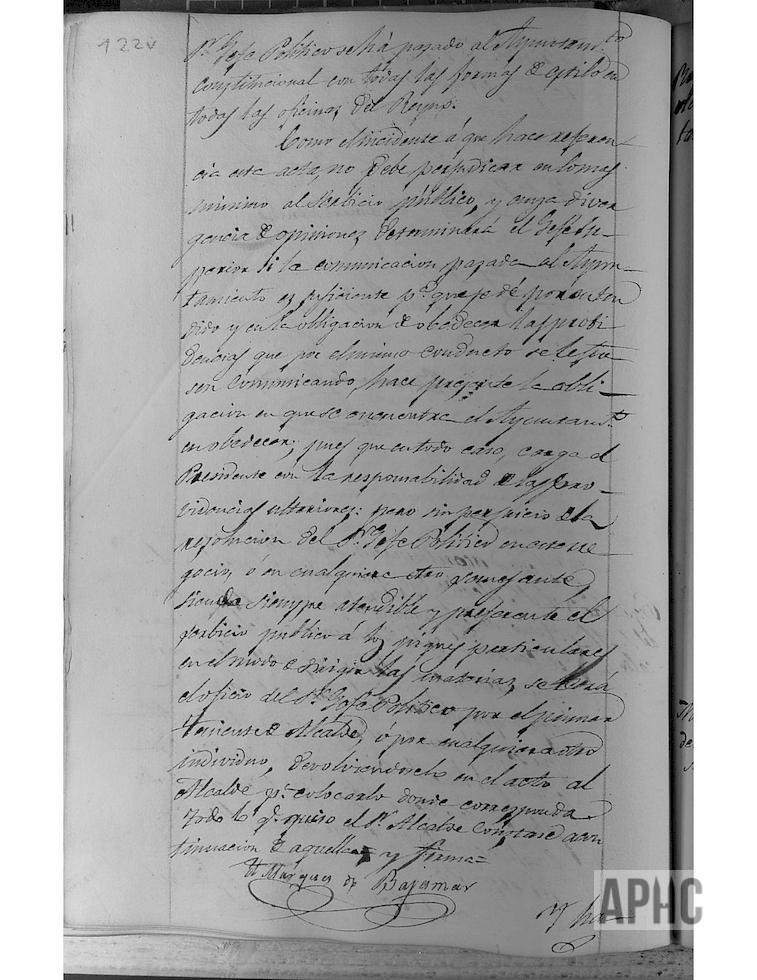 422v
Sr. Gefe Politico se há pasado al Ayuntam.to
Constitucional con todas las formas de estilo en
todas las oficinas del Reyno.
Como el incidente á que hace referen-
cia esta acta, no debe perjudicar en lo mas
minimo al serbicio público, y cuya diver
gencia de opiniones determinará el Gefe Su-
perior si la comunicacion pasada al Ayun-
tamiento es suficiente p.a que se dé por enten
dido y en la obligacion de obedecer las probi
dencias que por el mismo conducto se le
sen comunicando, hace presente la obli-
gacion en que se encuentra el Ayuntam.to
en obedecer; pues que en todo caso, carga el
Presidente con la responsabilidad de las pro-
videncias ulteriores: pero sin perjuicio de la
resolucion del Sr. Gefe Politico en este ne
gocio, ó en cualquiera otro semejante,
siendo siempre atendible y preferente el
serbicio publico á los piques particulares
en el modo de dirigir las materias, se leerá
el oficio del Sr. Gefe Politico por el primer
teniente de Alcalde, ó por cualquiera otro
individuo, debolviendoselo en el acto al
Alcalde p.a colocarlo donde corresponda.
Todo lo q.e quiso el Sr. Alcalde constase á con
tinuacion de aquella y firma=
El Marques de Bajamar
Y ha-
APHC